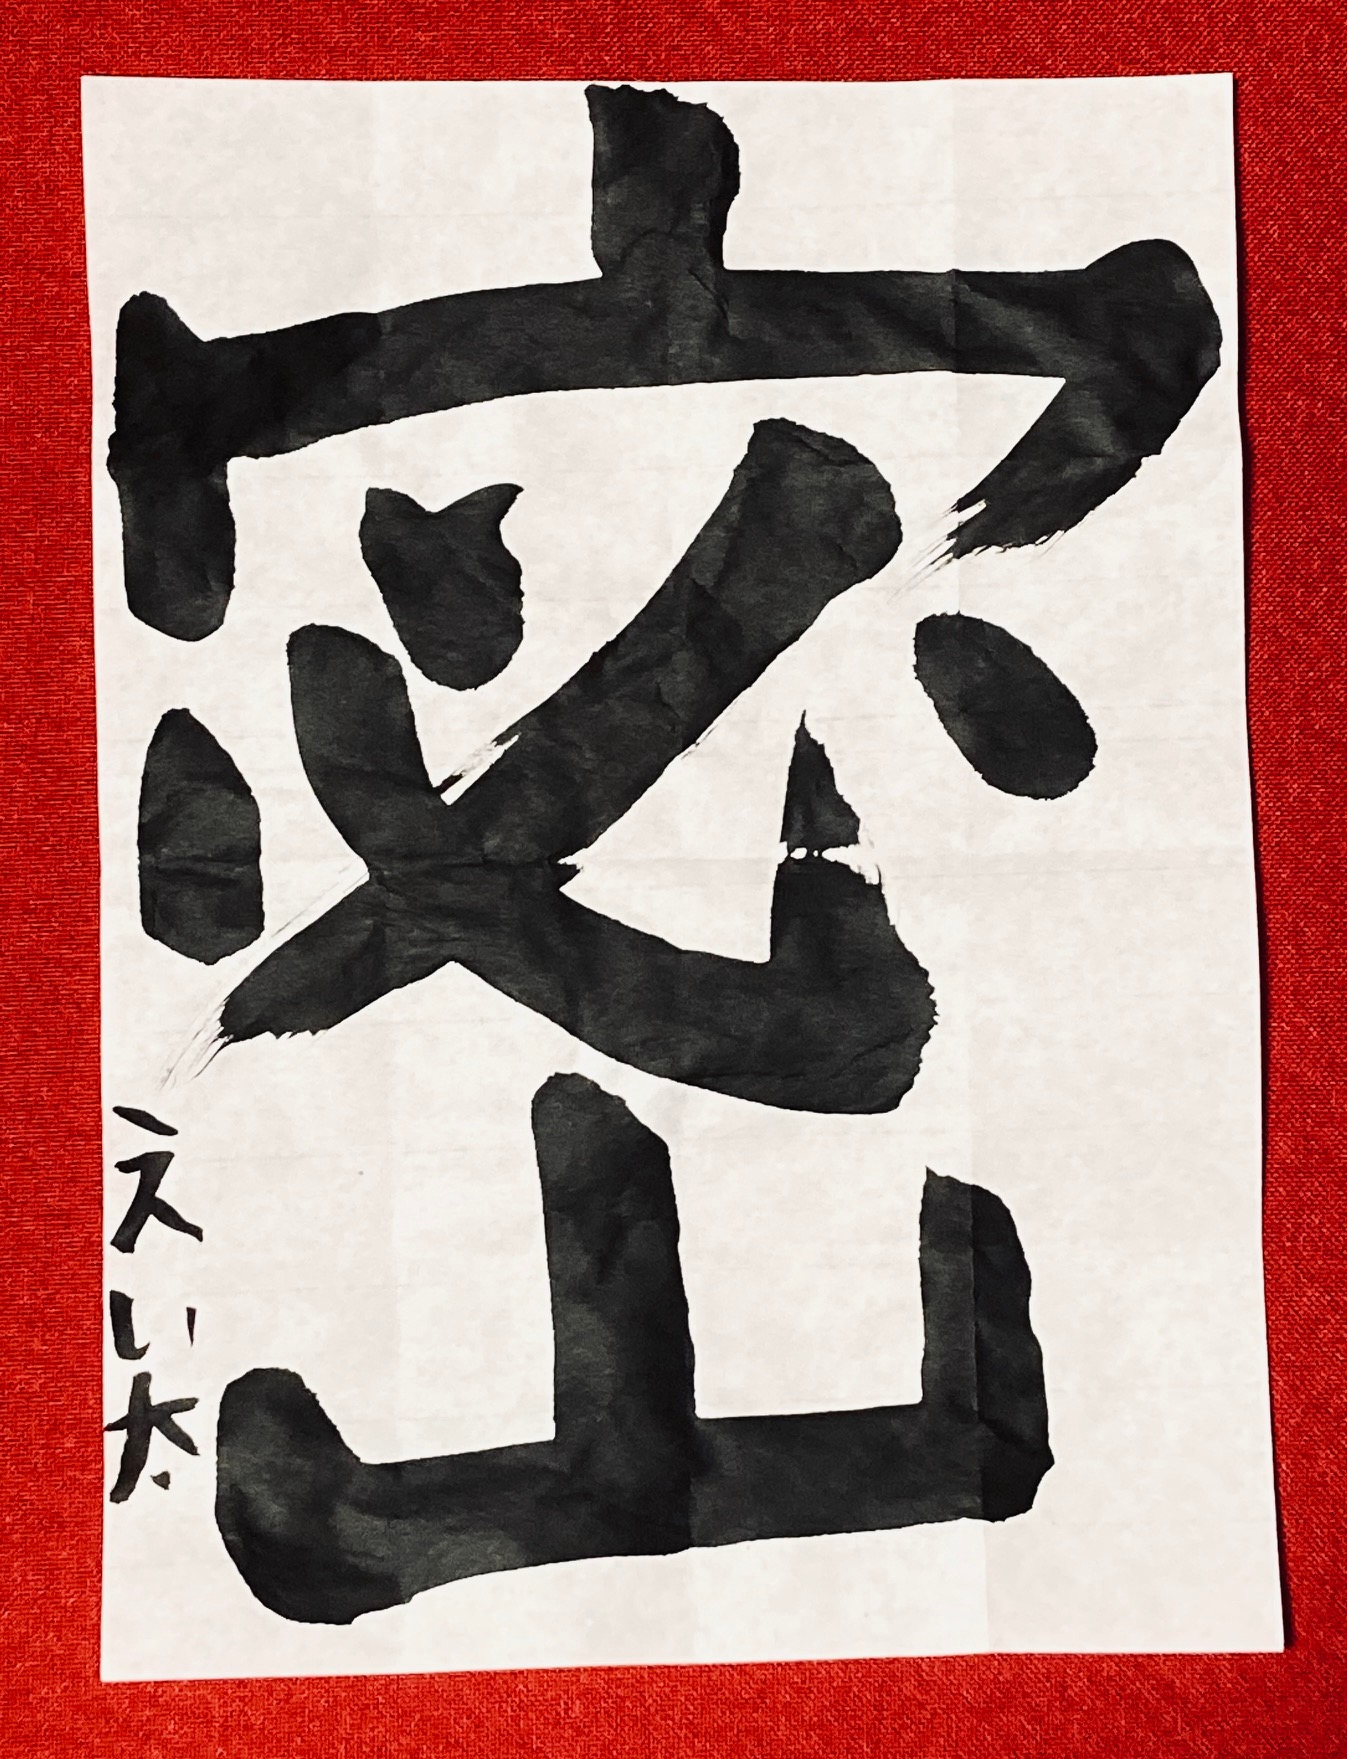 密
えい太